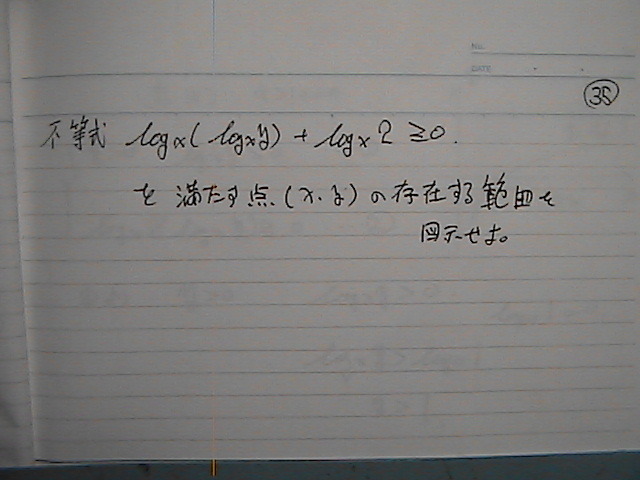 NO.
DATE
㉟
不等式 logx(logxy) + logx2 ≧0.
を満たす点(x.y)の存在する範囲を
図示せよ。